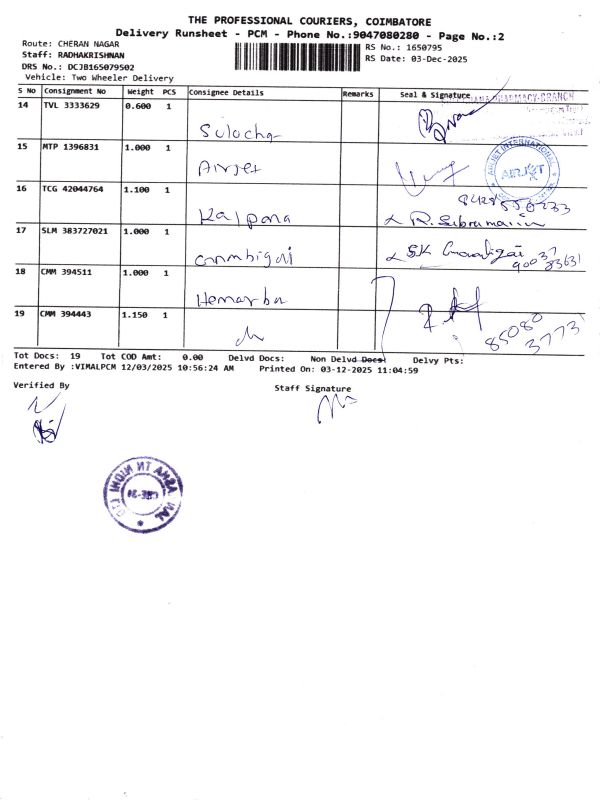 THE PROFESSIONAL COURIERS, COIMBATORE
Delivery Runsheet - PCM - Phone No.:9047080280 - Page No.:2
Route: CHERAN NAGAR
Staff: RADHAKRISHNAN
DRS No.: DCJB165079502
Vehicle: Two Wheeler Delivery
RS No.: 1650795
RS Date: 03-Dec-2025
S No Consignment No Weight PCS Consignee Details Remarks Seal & Signature
14 TVL 3333629 0.600 1 Sulocha
PHARMACY-BRANCH
15 MTP 1396831 1.000 1 Airjet
AIRJET INTERNATIONAL
AIRJET
16 TCG 42044764 1.100 1 Kalpana R. Subramanian
17 SLM 383727021 1.000 1 90037
83631
18 CMM 394511 1.000 1
19 CMM 394443 1.150 1 85080
37737
Tot Docs: 19 Tot COD Amt: 0.00 Delvd Docs: Non Delvd Docs: Delvy Pts:
Entered By :VIMALPCM 12/03/2025 10:56:24 AM Printed On: 03-12-2025 11:04:59
Verified By Staff Signature